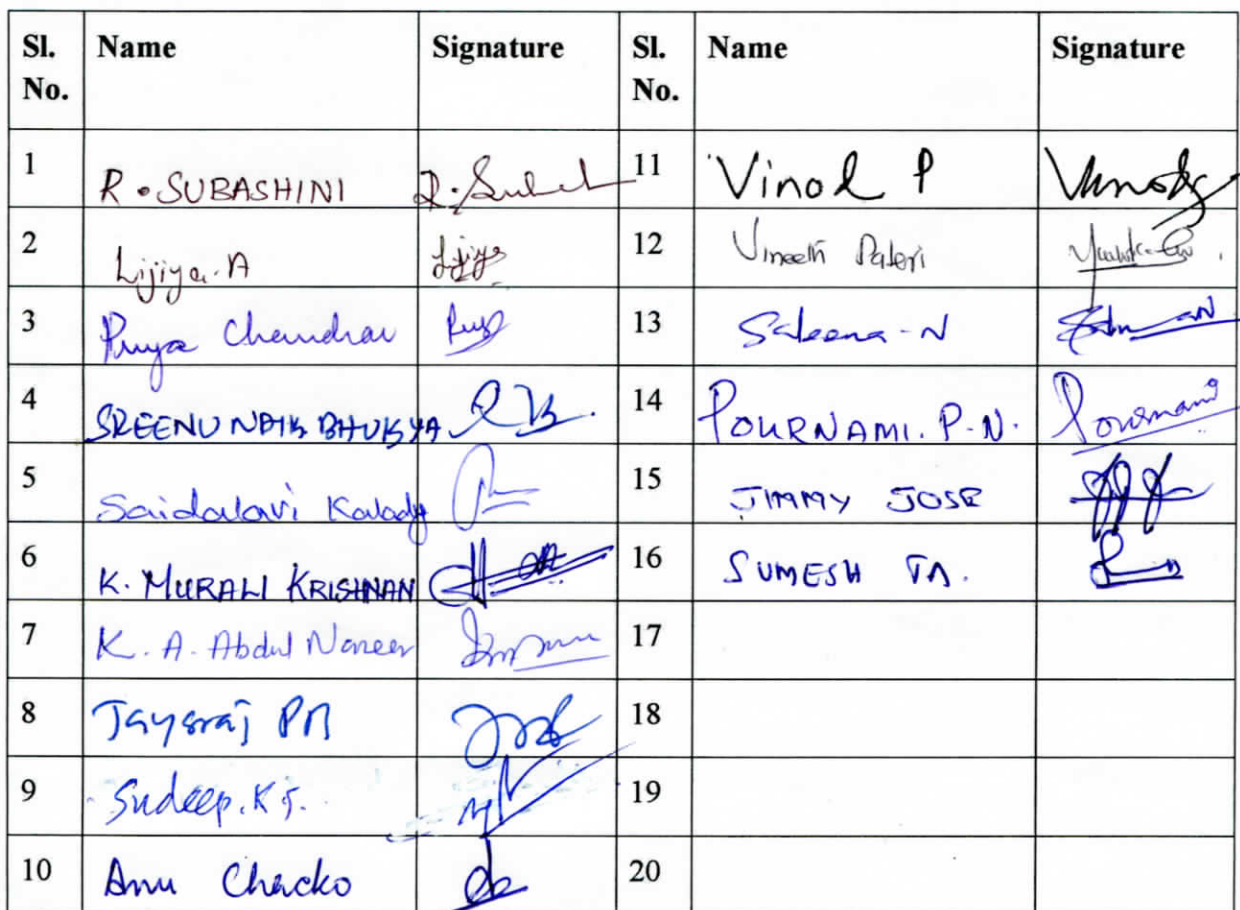 Sl. No. Name Signature Sl. No. Name Signature
1 R. SUBASHINI 11 Vinod P
2 Lijiya. A Lijiya 12 Vineeth Paleri
3 Priya Chandran 13 Saleena - N
4 SREENU NAIK BHUKYA 14 POURNAMI. P. N. Pournami
5 Saidalavi Kalady 15 JIMMY JOSE
6 K. MURALI KRISHNAN 16 SUMESH T.A.
7 K. A. Abdul Nazeer 17
8 Jayaraj PB 18
9 Sudeep. K S. 19
10 Anu Chacko 20